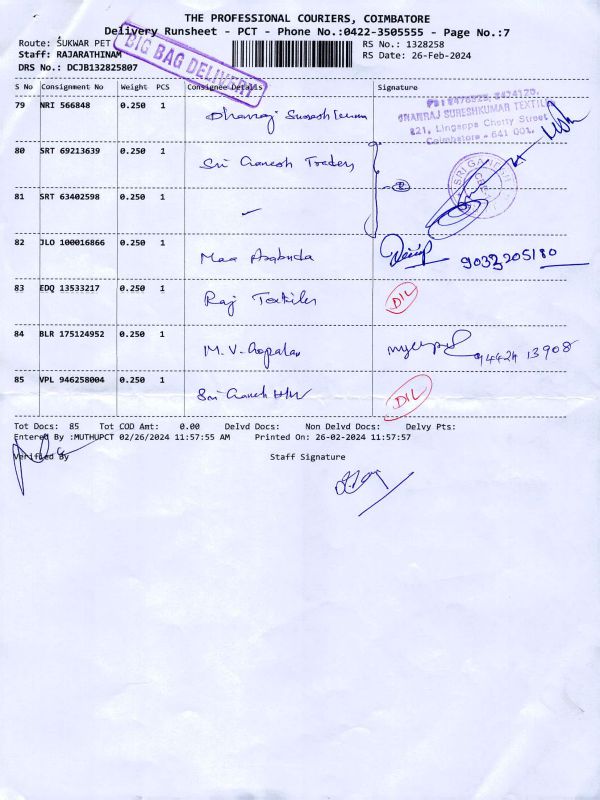 THE PROFESSIONAL COURIERS, COIMBATORE
Delivery Runsheet - PCT - Phone No.:0422-3505555 - Page No.:7
Route: SUKWAR PET
RS No.: 1328258
Staff: RAJARATHINAM
RS Date: 26-Feb-2024
DRS No.: DCJB132825807
BIG BAG DELIVERY
S No Consignment No Weight PCS Consignee Details Signature
79 NRI 566848 0.250 1 Dhanraj Sureshkumar
DHANRAJ SURESHKUMAR TEXTILE
221, Lingappa Chetty Street
Coimbatore - 641 001.
80 SRT 69213639 0.250 1 Sri Ganesh Traders
81 SRT 63402598 0.250 1
SRI GANESH
82 JLO 100016866 0.250 1 Maa 9033205180
83 EDQ 13533217 0.250 1 Raj Textiles DIL
84 BLR 175124952 0.250 1 M.V. Gopalan 94424 13908
85 VPL 946258004 0.250 1 Sri Ganesh H/W DIL
Tot Docs: 85 Tot COD Amt: 0.00 Delvd Docs: Non Delvd Docs: Delvy Pts:
Entered By :MUTHUPCT 02/26/2024 11:57:55 AM Printed On: 26-02-2024 11:57:57
Verified By Staff Signature